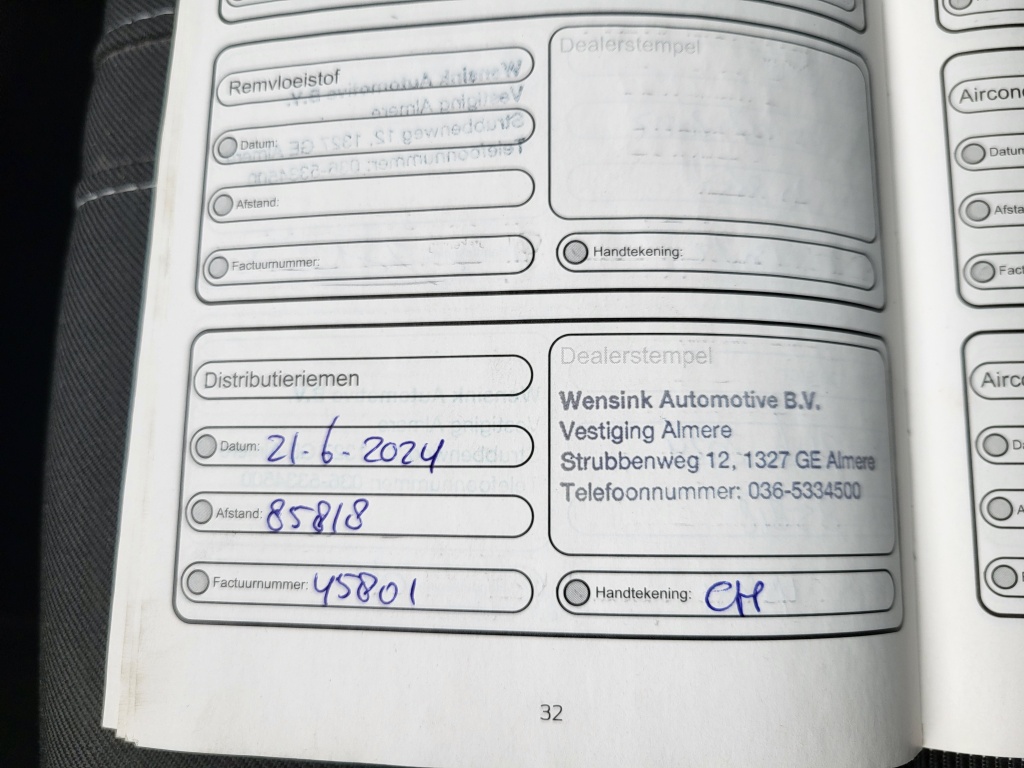 Remvloeistof
Datum:
Afstand:
Factuurnummer:
Dealerstempel
Handtekening:
Distributieriemen
Datum: 21-6-2024
Afstand: 85818
Factuurnummer: 45801
Dealerstempel
Wensink Automotive B.V.
Vestiging Almere
Strubbenweg 12, 1327 GE Almere
Telefoonnummer: 036-5334500
Handtekening: CH
32
Aircon
Datum
Afsta
Fact
Airco
Da
A